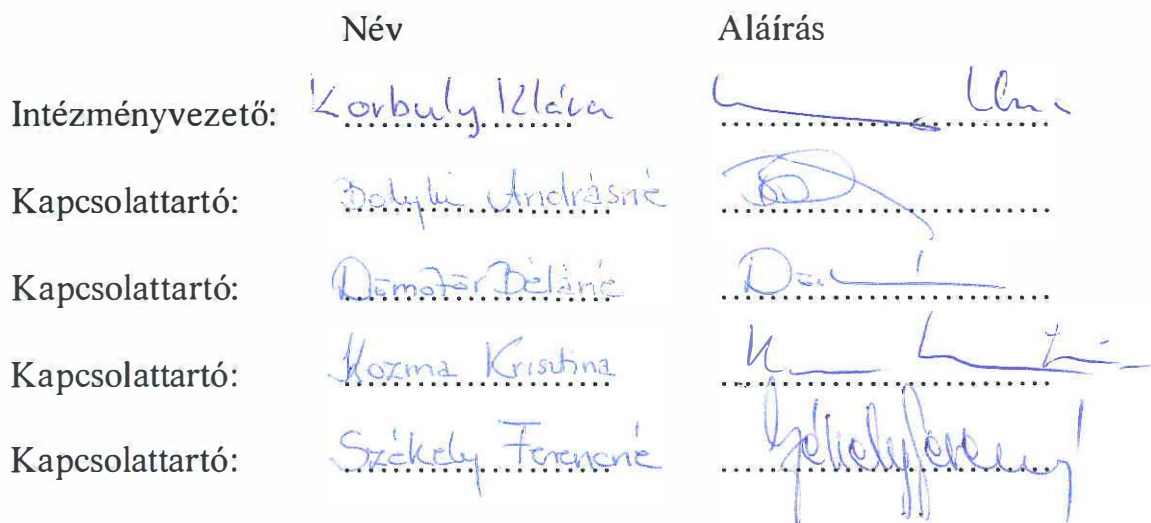 Név Aláírás
Intézményvezető: Korbuly Klára
Kapcsolattartó: Bolyki Andrásné
Kapcsolattartó: Dömötör Béláné
Kapcsolattartó: Kozma Krisztina
Kapcsolattartó: Székely Ferencné Székely Ferencné